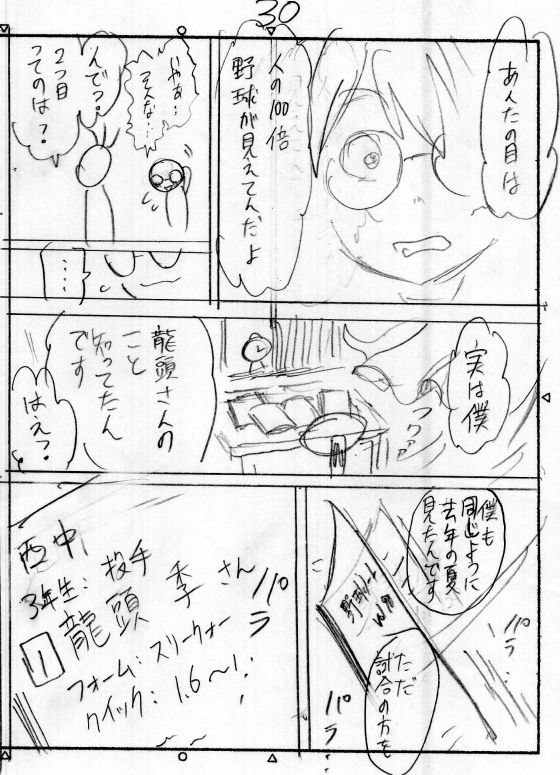 30
あんたの目は
人の100倍
野球が見えてんだよ
やぁ…
そんな…
んでっ?
2つ目
ってのは?
……
実は僕
龍頭さんの
こと
知ってたん
です
はぇ?
僕も
同じように
去年の夏
見たんです
野球ノート
ただ
試合の方を
パラ
パラ
パラ
西中
3年生:投手
1
龍頭 季さん
フォーム:スリークォー
クイック:1.6〜1.